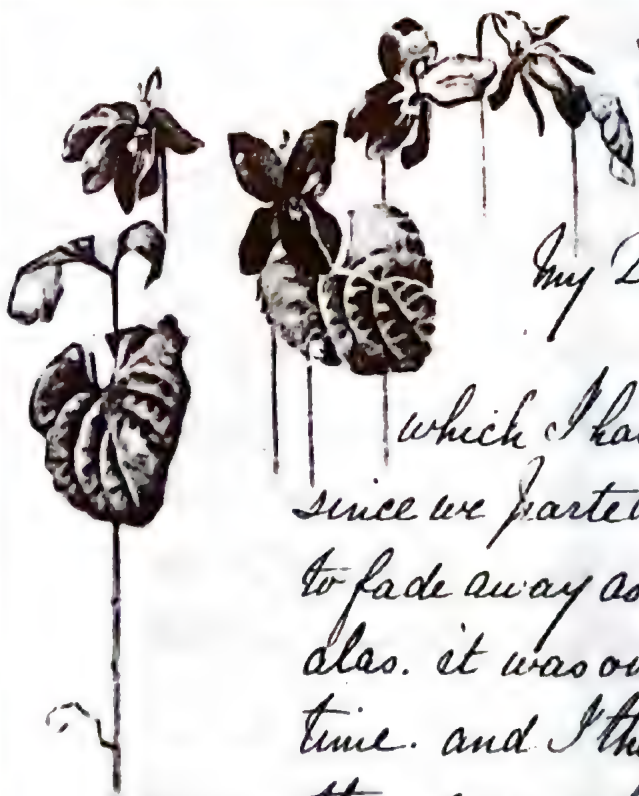 My D
which I ha
since we parte
to fade away as
alas. it was ou
time. and I th